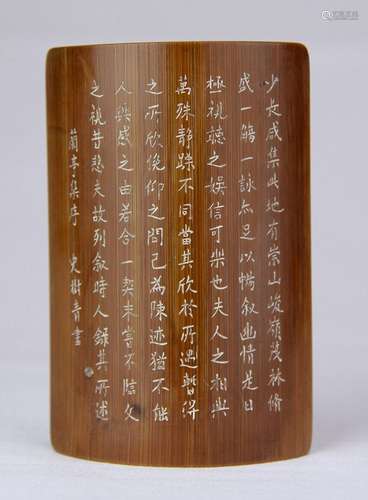 少長咸集此地有崇山峻嶺茂林脩
盛一觴一詠亦足以暢叙幽情是日
極視聽之娛信可樂也夫人之相與
萬殊静躁不同當其欣於所遇暫得
之所欣俛仰之間已為陳迹猶不能
人興感之由若合一契未嘗不臨文
之視昔悲夫故列叙時人錄其所述
蘭亭集序 史樹青書
易拍全球